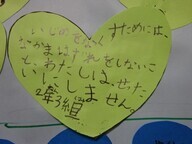 いじめをなくすためには、
なかまはずれをしないこ
と。わたしは、ぜった
いにしません。
2年3組